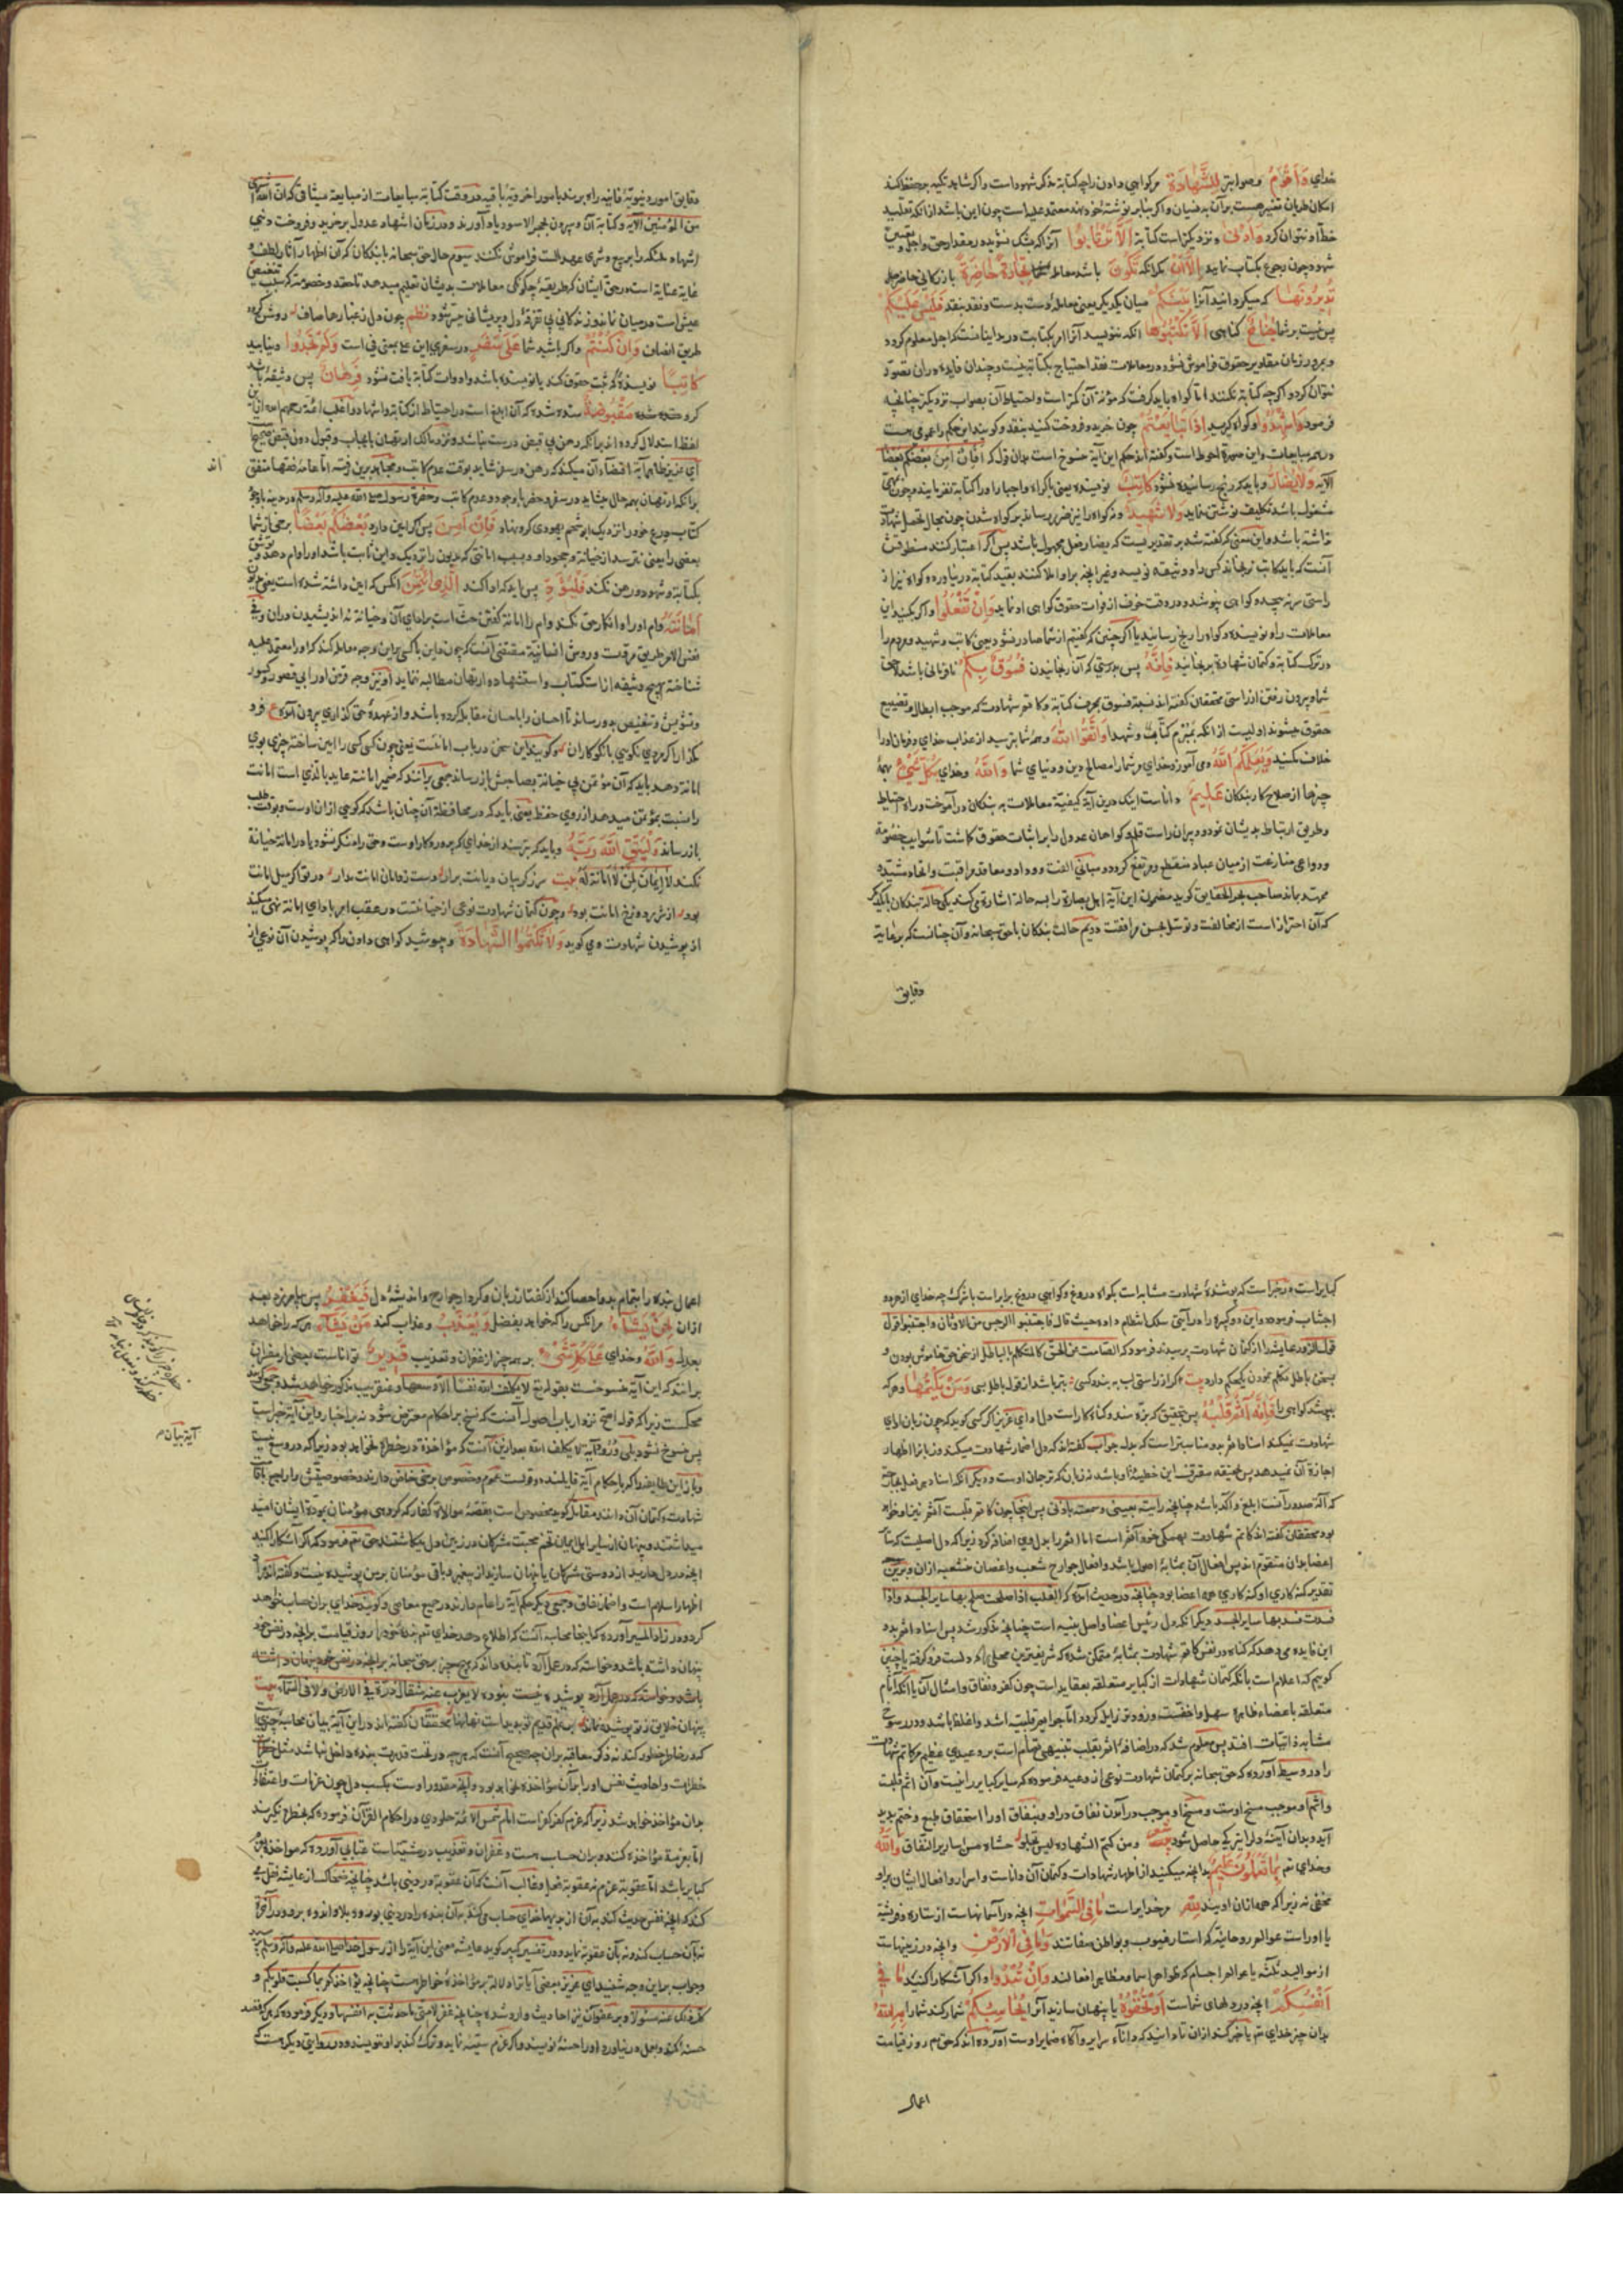 خدای وَأَقْوَمُ وصوابتر لِلشَّهَادَةِ مر کواهی دادن را چه کتابة مذکر شهود است واکر شاید تکیه بر حفظ کنند
امکان طریان تغییر هست بر آن بنسیان واکر بنابر نوشتهٔ خود نهند معتمد علیه است چون این باشد از انکه تقلید
خطّ او نتوان کرد وَأَدْنَىٰ و نزدیکتر است کتابة أَلَّا تَرْتَابُوا آنرا که شک نشوید در مقدار حق واجل و تعیین
شهود چون رجوع بکتاب نمایید إِلَّا أَنْ مکر انکه تَكُونَ باشد معامله شما تِجَارَةً حَاضِرَةً بازرکانی حاضر
تُدِيرُونَهَا که میکردانید آنرا بَيْنَكُمْ میان یکدیکر یعنی معامله دست بدست ونقد بنقد فَلَيْسَ عَلَيْكُمْ
پس نیست بر شما جُنَاحٌ کناهی أَلَّا تَكْتُبُوهَا انکه ننویسید آنرا امر بکتابت در مداینات است که اجل معلوم کردد
وبمرور زمان مقادیر حقوق فراموش نشود ودر معاملات نقد احتیاج بکتابة نیست وچندان فایده در ان تصور
نتوان کرد واکرچه کتابة نکنند امّا کواه باید کرفت که مؤنة آن کمتر است واحتیاط آن بصواب نزدیکتر چنانچه
فرمود وَأَشْهِدُوا وکواه کیرید إِذَا تَبَايَعْتُمْ چون خرید وفروخت کنید بنقد وکویند این حکم را عمومی هست
در همه مبایعات واین صورة احوط است وکفته اند حکم این آیة منسوخ است بدان قول که فَإِنْ أَمِنَ بَعْضُكُمْ بَعْضًا
الآیه وَلَا يُضَارَّ وباید که رنج رسانیده نشود كَاتِبٌ نویسنده یعنی باکراه واجبار او را کتابة نفرمایند وچون بمهمی
مشغول باشد تکلیف نوشتن ننماید وَلَا شَهِيدٌ ونه کواه را نیز ضرر رسانند بر کواه شدن چون مجال تحمل شهادة
نداشته باشد واین معنی که کفته شد بر تقدیریست که یضار فعل مجهول باشد پس اکر اعتبار کنند
آنست که باید کاتب نرنجاند کس را ووثیقه نویسد وغیر انچه برو املا کنند بقید کتابة در نیاورد وکواه نیز از
راستی سر نه پیچد وکواهی بپوشد ودر وقت خوف از فوات حقوق کواهی اد نماید وَإِنْ تَفْعَلُوا واکر بکنید این
معاملات را وبنویسنده وکواه را رنج رسانید یا اکر چنین که کفتیم از شما صادر نشود یعنی کاتب وشهید ومردم را
در ترک کتابة وکتمان شهادة برنجانید فَإِنَّهُ پس بدرستی که آن رنجانیدن فُسُوقٌ بِكُمْ نافرمانی باشد لاحق
شما وبیرون رفتن از راستی محققان کفته اند نسبة فسوق بمحرف کتابة وکاتم شهادت که موجب ابطال وتضییع
حقوق میشوند اولیست از انکه بمبرم کتّابت وشهدا وَاتَّقُوا اللَّهَ وهمه شما بترسید از عذاب خدای وفرمان او را
خلاف مکنید وَيُعَلِّمُكُمُ اللَّهُ ومی آموزد خدای مر شما را مصالح دین ودنیای شما وَاللَّهُ وخدای بِكُلِّ شَيْءٍ بهمهٔ
چیزها از صلاح کار بندکان عَلِيمٌ دانا است اینک درین آیة کیفیة معاملات به بندکان در آموخت وراه احتیاط
وطریق ارتباط بدیشان نمود ودبیران راست قلم وکواهان عدول را بر اثبات حقوق کاشت تا شوایب خصومة
ودواعی منازعت از میان عباد منقطع ومرتفع کردد ومبانی الفت ووداد ومعاقد مراقبت واتحاد مشیّد و
ممهّد بماند صاحب بحر الحقایق کوید مضمون این آیة اهل بصارة را بسه حالة اشارة می کند یکی حالة بندکان با یکدیکر
که آن احتراز است از مخالفت وتوسل بحسن موافقت دیم حالت بندکان با حق سبحانه وآن چنانست که برعایة
دقایق
دقایق امور دنیویّهٔ فانیه راه برند بامور اخرویّهٔ باقیه ودر وقت کتابة مبایعات از مبایعة میثاقی که ان الله اشتری
من المؤمنین الآیه وکتابة آن وسپردن بحجر الاسود یاد آورند ودر زمان اشهاد عدول بر خرید وفروخت دنیی
اشهاد ملئکه را بر بیع وشری عهد الست فراموش نکنند سیوم حال حق سبحانه با بندکان که آن اظهار آثار لطف و
غایة عنایة است در حق ایشان که طریقهٔ چکونکی معاملات بدیشان تعلیم میدهد تا حقد وخصومة که سبب تنغیص
عیش است در میان نماند وزندکانی بی تفرقهٔ دل وپریشانی میسر شود نظم چون دل ز غبارها صاف روشن کردد
طریق انصاف وَإِنْ كُنْتُمْ واکر باشید شما عَلَىٰ سَفَرٍ در سفری این علی بمعنی فی است وَلَمْ تَجِدُوا ونیابید
كَاتِبًا نویسندهٔ که ثبت حقوق کند یا نویسنده باشد وادوات کتابة یافت نشود فَرِهَانٌ پس وثیقهٔ باشد
کرو شده شده مَقْبُوضَةٌ ستده شده که آن ابلغ است در احتیاط از کتابة واشهاد واغلب ائمّه رحمهم الله از آن
لفظ استدلال کرده اند برانکه رهن بی قبض درست نباشد ونزد مالک ارتهان بایجاب وقبول بدون قبض صحیح
ای عزیز ظاهر آیة اقتضاء آن میکند که رهن در سفر شاید بوقت عدم کاتب ومجاهد برین رفته امّا عامهٔ فقها متفق اند
برانکه ارتهان بهمه حال میشاید در سفر وحضر با وجود وعدم کاتب وحضرة رسول صلی الله علیه وآله وسلم در مدینه با وجود
کتاب درع خود را نزدیک ابو شحم یهودی کرو نهاد فَإِنْ أَمِنَ پس اکر امین دارد بَعْضُكُمْ بَعْضًا برخی از شما
بعضی را یعنی نترسد از خیانة وجحود او وبسبب امانتی که مدیون را نزدیک داین ثابت باشد او را وام دهد وتوثیق
بکتابة وشهود ورهن نکند فَلْيُؤَدِّ پس باید که ادا کند الَّذِي اؤْتُمِنَ انکس که امین داشته شده است یعنی مدیون
أَمَانَتَهُ وام او را وانکار حق نکند وام را امانة کفتن حث است بر ادای آن وخیانة نه اندیشیدن در ان وفی
نفس الامر طریق مروت وروش انسانیّة مقتضی آنست که چون داین با کسی برین وجه معامله کند که او را معتمد علیه
شناخته بهیچ وثیقه از استکتاب واستشهاد وارتهان مطالبه ننماید او نیز وجه قرض او را بی قصور وکسور
وتشویش وتنغیص بدو رساند تا احسان را باحسان مقابل کرده باشد واز عهدهٔ حق کذاری بیرون آمده ع فرو
مکذار اکر مردی نکویی با نکوکاران وکویند این سخن در باب امانتست یعنی چون کسی کسی را امین ساخته چیزی بوی
امانة دهد باید که آن مؤتمن بی خیانة بصاحبش باز رساند جمعی برآنند که ضمیر امانته عاید بالّذی است امانت
را نسبت بمؤتمن میدهد از روی حفظ یعنی باید که در محافظة آن چنان باشد که کویی از ان اوست وبوقت طلب
باز رساند وَلْيَتَّقِ اللَّهَ رَبَّهُ وباید که بترسد از خدای که پروردکار اوست وحق را منکر نشود یا در امانة خیانة
نکند لا ایمان لمن لا امانة له بیت سر ز کریبان دیانت برار دست ز دامان امانت مدار در تو اکر میل امانت
بود از شررِ دوزخ امانت بود وچون کتمان شهادت نوعی از خیانتست در عقب امر بادای امانة نهی میکند
از پوشیدن شهادت ومی کوید وَلَا تَكْتُمُوا الشَّهَادَةَ ومپوشید کواهی دادن را که پوشیدن آن نوعی از
کبایر است ودر خبر است که پوشندهٔ شهادت مشابه است بکواه دروغ وکواهی دروغ برابر است با شرک چه خدای از هر دو
اجتناب فرموده واین دو کبیره را در آیتی سلک انتظام داده حیث قال فاجتنبوا الرجس من الاوثان واجتنبوا قول
قول الزور عایشه را از کتمان شهادت پرسیدند فرمود که الصامت عن الحق کالمتکلم بالباطل از سخن حق خاموش بودن و
بسخن باطل تکلم نمودن یک حکم دارد بیت کر از راستی لب ببندد کسی بتر باشد از قول باطل بسی وَمَنْ يَكْتُمْهَا وهر که
بپوشد کواهی را فَإِنَّهُ آثِمٌ قَلْبُهُ پس بتحقیق که بزه مند وکناه کار است دل او ای عزیز اکر کسی کوید که چون زبان ادای
شهادت نمیکند اسناد اثم بدو مناسبتر است که بدل جواب کفته اند که دل اضمار شهادت میکند وزبانرا اظهار
اجازة آن نمیدهد پس بحقیقه مقترف این خطیئه او باشد نه زبان که ترجمان اوست ودیکر آنکه اسناد هر فعل بجارحة
که آلة صدور آنست ابلغ وآکد باشد چنانچه رایت بعینی وسمعت باذنی پس اینجا چون کاتم قلبست آثم نیز او خواهد
بود محققان کفته اند کاتم شهادت بهمکی خود آثم است اما اثم را بدل وی اضافه کرد زیرا که دل اصلیست که سایر
اعضا بدان متقوم اند پس افعال آن بمثابهٔ اصول باشد وافعال جوارح شعب واغصان منشعبه ازان وبرین
تقدیر کنه کاری او کنه کاری همه اعضا بود چنانچه در حدیث آمد که القلب اذا صلحت صلح بها سایر الجسد واذا
فسدت فسد بها سایر الجسد دیکر انکه دل رئیس اعضا واصل بنیه است چنانچه مذکور شد پس اسناد اثم بدو
این فایده می دهد که کناه در نفس کاتم شهادت بمثابهٔ متمکن شده که شریفترین محلی از دلست فرو کرفته یا چنین
کوییم که اعلام است بانکه کتمان شهادات از کبایر متعلقه بعقاید است چون کفر ونفاق وامثال آن یا انکه آثام
متعلقه باعضاء ظاهره سهل واخفّست وزودتر زایل کردد امّا جرایم قلبیّه اشد واغلظ باشد ودر رسوخ
مشابه ذاتیات افتد پس معلوم شد که در اضافهٔ اثم بقلب تنبیهی تمام است بر وعیدی عظیم مر کاتم شهادت
را ودر وسیط آورده که حق سبحانه بر کتمان شهادت نوعی از وعید فرموده که سایر کبایر را نیست وآن اثم قلبست
واثم او موجب مسخ اوست ومسخ او موجب در آمدن نفاق در او وبنفاق او را استحقاق طبع وختم پدید
آید وبدان آینهٔ دل را تیرکی حاصل شود شعر ومن کتم الشهادة لیس یخلو حشاه من سرایر النفاق وَاللَّهُ
وخدای تع بِمَا تَعْمَلُونَ عَلِيمٌ بدانچه میکنید از اظهار شهادات وکتمان آن داناست واسرار وافعال ایشان برو
مخفی نه زیرا که همه ازان اویند لِلَّهِ مر خدایراست مَا فِي السَّمَوَاتِ انچه در آسمانهاست از ستاره وفرشته
یا او راست عوالم روحانیّه که استار غیوب وبواطن صفاتند وَمَا فِي الْأَرْضِ وانچه در زمینهاست
از موالید ثلثه یا عوالم اجسام که ظواهر اسما ومظاهر افعالند وَإِنْ تُبْدُوا واکر آشکارا کنید مَا فِي
أَنْفُسِكُمْ انچه در دلهای شماست أَوْ تُخْفُوهُ یا پنهان سازید آنرا يُحَاسِبْكُمْ شمار کند شمارا بِهِ اللَّهُ
بدان چیز خدای تع یا خبر کند ازان تا دانید که دانای سرایر وآگاه ضمایر اوست آورده اند که حق تع روز قیامت
اعمال
اعمال بنده را بتمام بدو احصا کند از کفتار زبان وکردار جوارح واندیشهٔ دل فَيَغْفِرُ پس بیامرزد بعد
ازان لِمَنْ يَشَاءُ مر انکس را که خواهد بفضل وَيُعَذِّبُ وعذاب کند مَنْ يَشَاءُ هر که را خواهد
بعدل وَاللَّهُ وخدای عَلَىٰ كُلِّ شَيْءٍ بر همه چیز از غفران وتعذیب قَدِيرٌ تواناست بعضی از مفسران
برانند که این آیة منسوخست بقوله تع لا یکلف الله نفسا الا وسعها وعنقریب مذکور خواهد شد وجمعی کویند
محکمست زیرا که قول اصح نزد ارباب اصول آنست که نسخ بر احکام معترض شود نه بر اخبار واین آیة خبر است
پس منسوخ نشود بلی ورود آیة لا یکلف الله بعد ازین آنست که مؤاخذة در خطره نخواهد بود زیرا که در وسع نیست
وباز این طایفه را که باحکام آیة قایلند دو قولست عموم وخصوص برخی خاص دارند وخصوصیّتش را راجع باکتمان
شهادت وکتمان آن دانند ومقاتل کوید مخصوص است بقصهٔ موالاة کفار که کروهی مؤمنان بمودّة ایشان امید
میداشتند وپنهان از سایر اهل ایمان تخم محبّت مشرکان در زمین دل میکاشتند حق تع فرمود که اکر آشکارا کنید
انچه در دل دارید از دوستی مشرکان یا پنهان سازید از پیغمبر وباقی مؤمنان بر من پوشیده نیست وکفته اند مراد
اظهار اسلام است واخفاء نفاق وجمعی دیکر حکم آیة را عام دارند در جمیع معاصی وکویند خدای بران حساب خواهد
کرد ودر زاد المسیر آورده که اینجا محاسبه آنست که اطلاع دهد خدای تع بندهٔ خود را روز قیامت برانچه در نفس خود
پنهان داشته باشد وخواسته که در عمل آرد تا بنده داند که هیچ چیز بر حق سبحانه برانچه در نفس خود پنهان داشته
باشد وخواسته که در عمل آرد پوشیده نیست ونبوده لا یعزب عنه مثقال ذرّة فی الارض ولا فی السّماء بیت
پنهان خلایق ز تو پوشیده نماند بر علم قدیم تو بدید است نهانها محققان کفته اند در این آیة بیان محاسبهٔ چیزی
که در خاطر خطور کند نه ذکر معاقبه بران چه صحیح آنست که هر چه در تحت قدرت بنده داخل نباشد مثل خطرهٔ
خطرات واحادیث نفس او را بر آن مؤاخذه نخواهد بود وانچه مقدور اوست بکسب دل چون عزمات واعتقادات
بدان مؤاخذ خواهد شد زیرا که عزم کفر کفر است امام شمس الائمّه حلوایی در احکام القرآن فرموده که بخطره نکیرند
امّا بعزیمة مؤاخذه کنند وبران حساب هست وغفران وتعذیب در مشیّتست عتابی آورده که مؤاخذه بر
کبایر باشد امّا عقوبة عزم نه عقوبة فعل وغالب آنست که آن عقوبة در دنیی باشد چنانچه ضحاک از عایشه نقل می
کند که انچه نفس حدیث کند بآن از بدیها خدای حساب می کند بدان بنده را در دنیی بدرد وبلا واندوه برو ودر آخرة
نه بآن حساب کند ونه بآن عقوبة نماید ودر تفسیر کبیر کوید عایشه معنی این آیة را از رسول خدا صلی الله علیه وآله وسلم پرسید
وجواب برین وجه شنید ای عزیز بعضی آیات دلالة بر مؤاخذهٔ خواطر هست چنانچه یؤاخذکم بما کسبت قلوبکم و
کل اولئک کان عنه مسئولا وبر عفو آن نیز احادیث وارد شده چنانچه غفر لامتی ما حدثت به انفسها ودیکر فرموده که هر که قصد
حسنه کند وبعمل در نیاورد او را حسنهٔ نویسند واکر عزم سیّئه نماید وترک کند برو ننویسند ودر روایتی دیکر هست که
آیة بیان م